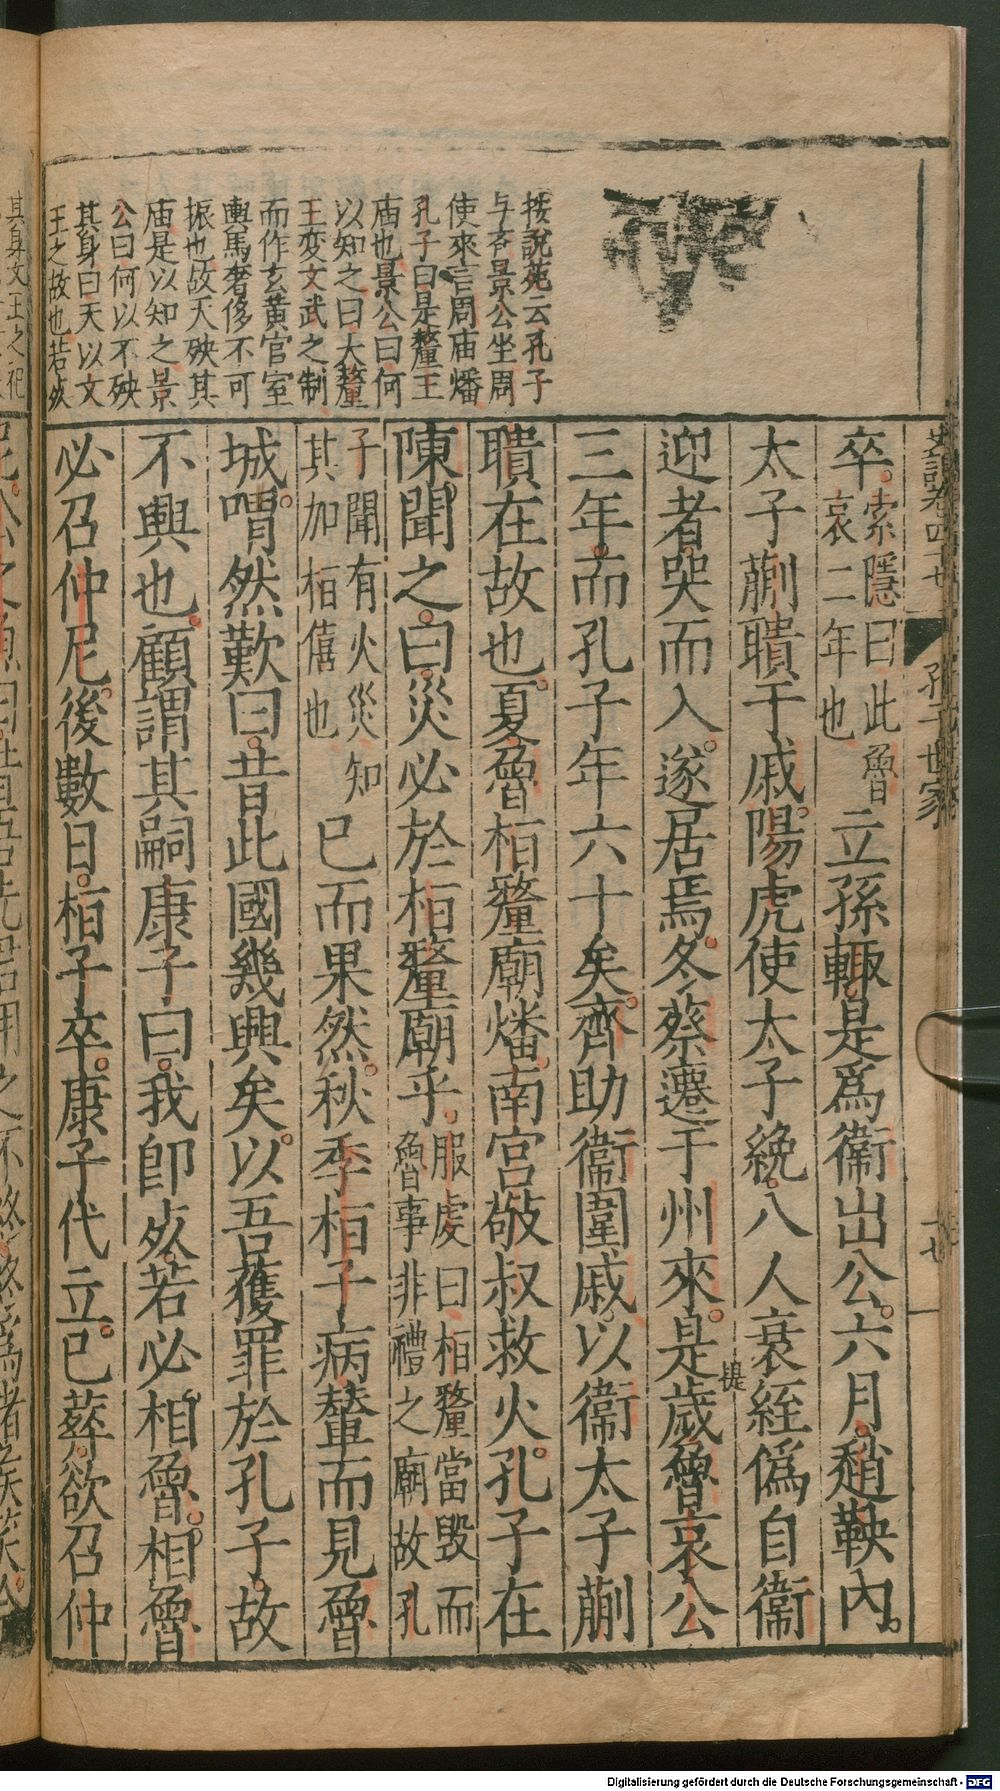 史記卷四十七 孔子世家 十七
按說苑云孔子
与齐景公坐周
使來言周庙燔
孔子曰是釐王
庙也景公曰何
以知之曰大釐
王変文武之制
而作玄黄宫室
輿馬奢侈不可
振也故天殃其
庙是以知之景
公曰何以不殃
其身曰天以文
王之故也若殃
卒索隱曰此魯哀二年也立孫輒是爲衞出公六月趙鞅內
太子蒯聵于戚陽虎使太子絻八人衰絰僞自衞
迎者哭而入遂居焉冬蔡遷于州來是歲魯哀公
提
三年而孔子年六十矣齊助衞圍戚以衞太子蒯
聵在故也夏魯桓釐廟燔南宮敬叔救火孔子在
陳聞之曰災必於桓釐廟乎服虔曰桓釐當毀而魯事非禮之廟故孔
子聞有火災知其加桓僖也已而果然秋季桓子病輦而見魯
城喟然歎曰昔此國幾興矣以吾獲罪於孔子故
不興也顧謂其嗣康子曰我卽死若必相魯相魯
必召仲尼後數日桓子卒康子代立已葬欲召仲
其身文王之祀
Digitalisierung gefördert durch die Deutsche Forschungsgemeinschaft - DFG